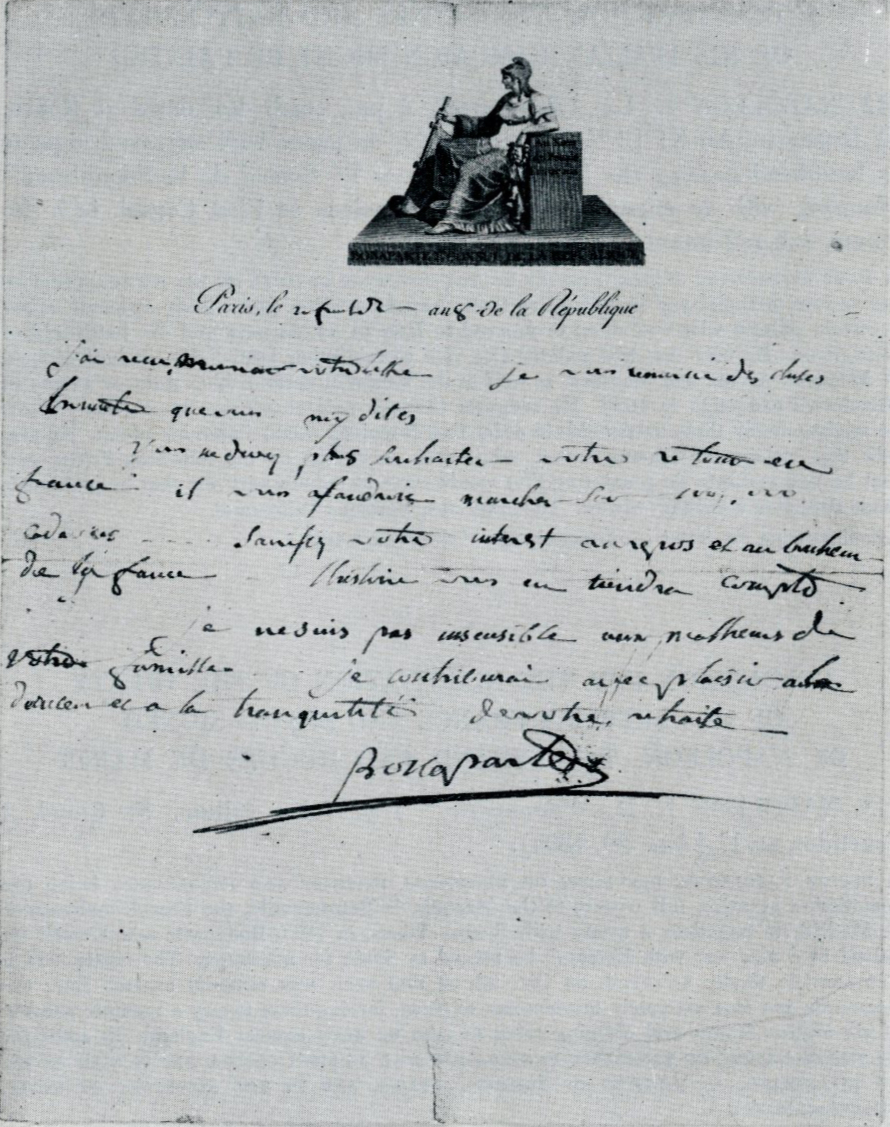 BONAPARTE 1er CONSUL DE LA REPUBLIQUE
Paris, le 20 an 8 de la République
j'ai recu, monsieur votre lettre je vous remercie des choses
honnetes que vous my dites
vous ne devez plus souhaiter votre retour en
france il vous faudroit marcher sur 100,000
cadavres sacrifiez votre interest au repos et au bonheur
de la france l'histoire vous en tiendra compte
je ne suis pas insensible aux malheurs de
votre famille je contribuerai avec plaisir a la
douceur et a la tranquilité de votre retraite
Bonaparte